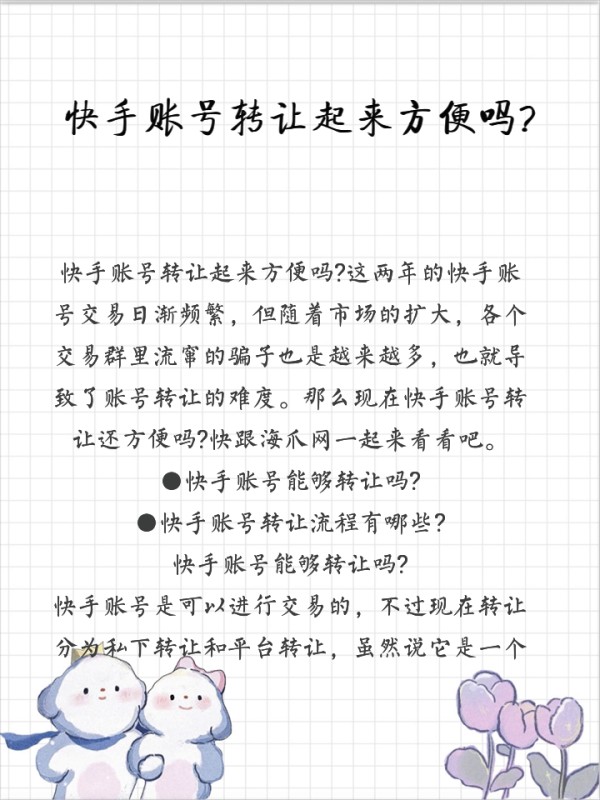 快手账号转让起来方便吗?
快手账号转让起来方便吗?这两年的快手账
号交易日渐频繁，但随着市场的扩大，各个
交易群里流窜的骗子也是越来越多，也就导
致了账号转让的难度。那么现在快手账号转
让还方便吗?快跟海爪网一起来看看吧。
●快手账号能够转让吗?
●快手账号转让流程有哪些?
快手账号能够转让吗?
快手账号是可以进行交易的，不过现在转让
分为私下转让和平台转让，虽然说它是一个